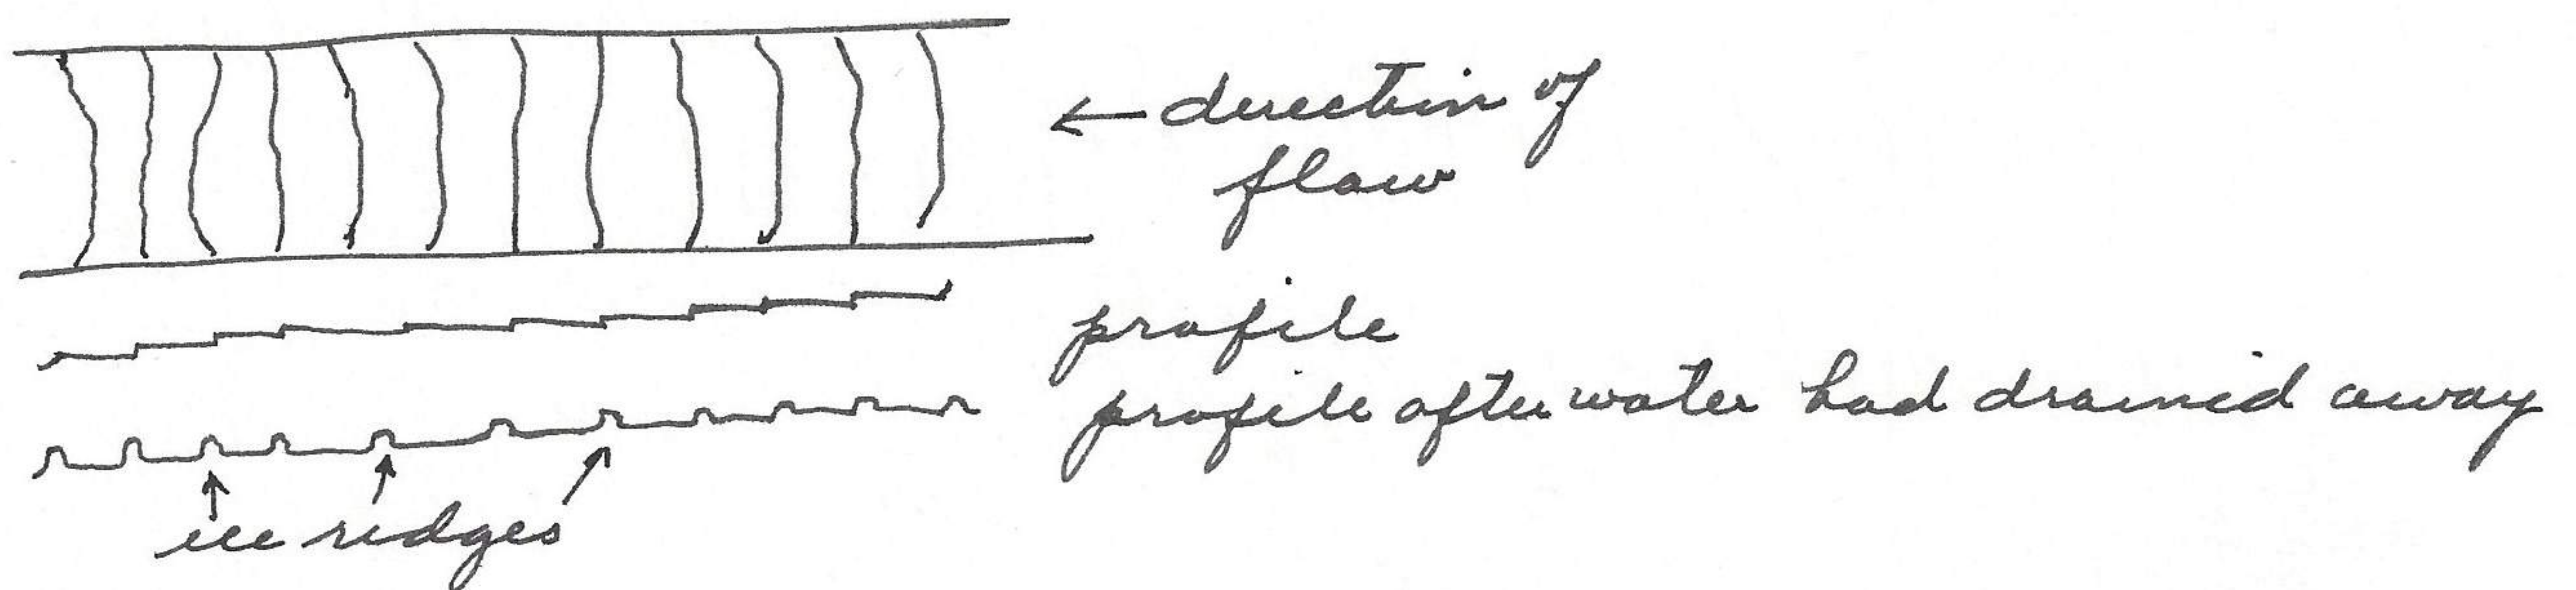 ← direction of
flow
profile
profile after water had drained away
ice ridges